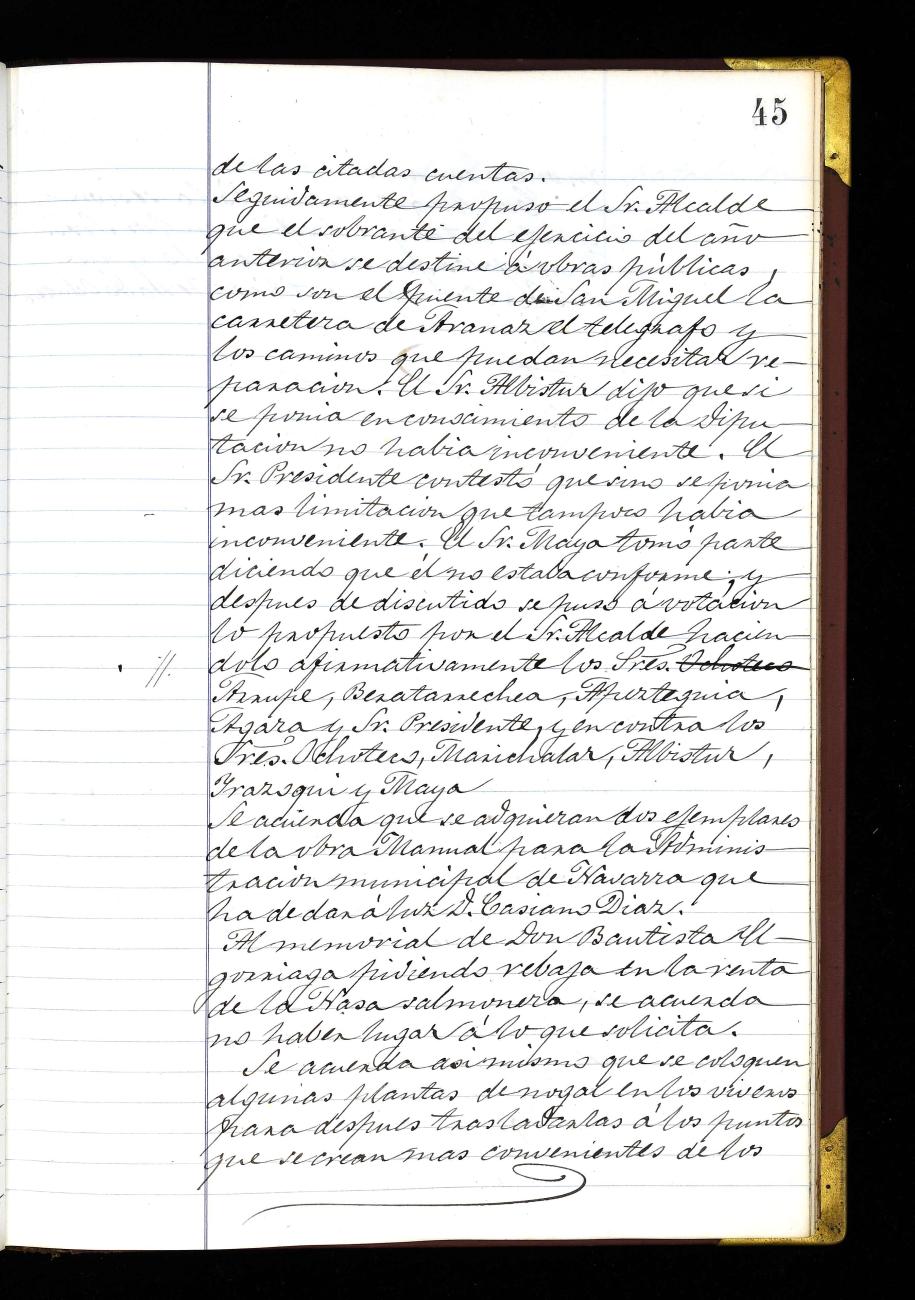 45
de las citadas cuentas.
Seguidamente propuso el Sr. Alcalde
que el sobrante del ejercicio del año
anterior se destine á obras públicas,
como son el puente de San Miguel la
carretera de Aranaz el telegrafo y
los caminos que puedan necesitar re-
paracion. El Sr. Albistur dijo que si
se ponia en conocimiento de la Dipu-
tacion no habia inconveniente. El
Sr. Presidente contestó que sino se ponia
mas limitacion que tampoco habia
inconveniente. El Sr. Maya tomó parte
diciendo que él no estaba conforme; y
despues de discutido se puso á votacion
lo propuesto por el Sr. Alcalde hacien-
dolo afirmativamente los Sres. Ochoteco
Arrupe, Benatarrechea, Apezteguia,
Agara y Sr. Presidente, y en contra los
Sres. Ochoteco, Marichalar, Albistur,
Irazoqui y Maya
Se acuerda que se adquieran dos ejemplares
de la obra Manual para la Adminis-
tracion municipal de Navarra que
ha de dar á luz D. Casiano Diaz.
Al memorial de Don Bautista El-
gorriaga pidiendo rebaja en la renta
de la Nasa salmonera, se acuerda
no haber lugar á lo que solicita.
Se acuerda asi mismo que se coloquen
algunas plantas de nogal en los viveros
para despues trasladarlas á los puntos
que se crean mas convenientes de los